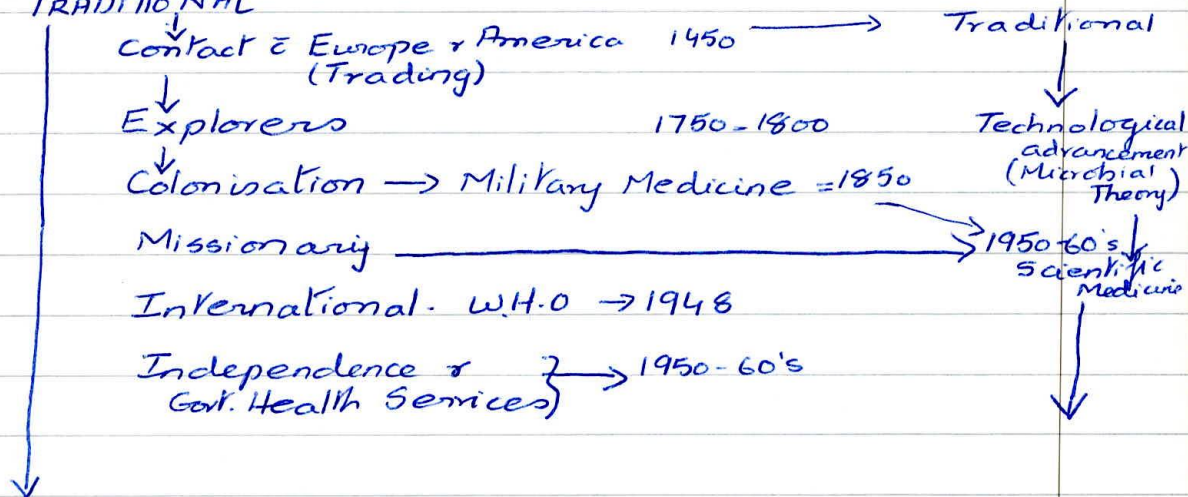 TRADITIONAL
Contact c̄ Europe & America 1450 → Traditional
(Trading)
Explorers 1750-1800 Technological
advancement
(Microbial
Theory)
Colonisation → Military Medicine = 1850
Missionary → 1950-60's
Scientific
Medicine
International. W.H.O → 1948
Independence & } → 1950-60's
Govt. Health Services